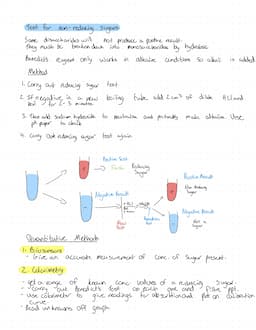 Test for non-reducing sugars
Some disaccharides will not produce a positive result.
they must be broken down into monosaccharides by hydrolysis
Benedicts reagent only works in alkaline conditions so alkali is added
Method
1. Carry out reducing sugar test
2. If negative in a new boiling tube add 2cm³ of dilute HCl and
for 2-3 minutes
3. Then add sodium hydroxide to neutralise and partially make alkaline. Use
pH paper to check
4. Carry out reducing sugar test again
Positive Result
Reducing
Sugar
Positive Result
Non Reducing
Sugar
Negative Result
Negative Result
Not a
Sugar
Quantitative Methods
1. Biosensors
- Give an accurate measurement of conc of sugar present.
2. Colorimetry
- Get a range of known conc values of a reducing sugar.
- Carry out benedicts test on each one and filter ppt.
- Use colorimeter to give readings for absorbtion and plot on calibration
curve.
- Read unknowns off graph